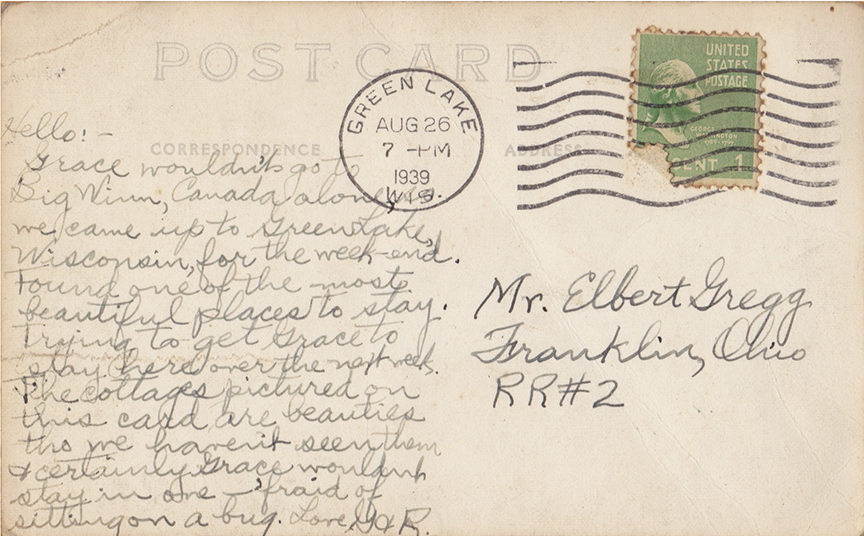 POST CARD
CORRESPONDENCE
ADDRESS
GREEN LAKE
AUG 26
7 -PM
1939
WIS.
UNITED
STATES
POSTAGE
GEORGE
WASHINGTON
CENT 1
Hello! -
Grace wouldn't go to
Big Winn, Canada alone, so
we came up to Green Lake,
Wisconsin, for the week-end.
Found one of the most
beautiful places to stay.
Trying to get Grace to
stay here over the next week.
The cottages pictured on
this card are beauties
tho we haven't seen them
& certainly Grace wouldn't
stay in one - 'fraid of
sitting on a bug. Love, G & R.
Mr. Elbert Gregg
Franklin, Ohio
RR#2